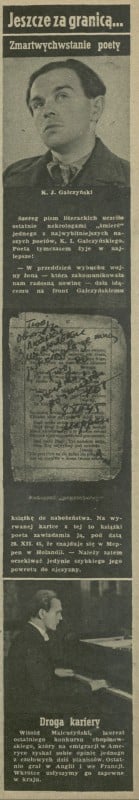 Jeszcze za granicą...
Zmartwychwstanie poety
K. I. Gałczyński
Szereg pism literackich uczciło
ostatnio nekrologami „śmierć"
jednego z najwybitniejszych na-
szych poetów, K. I. Gałczyńskiego.
Poeta tymczasem żyje w naj-
lepsze!
— W przeddzień wybuchu woj-
ny żona — która zakomunikowała
nam radosną nowinę — dała idą-
cemu na front Gałczyńskiemu
książkę do nabożeństwa. Na wy-
rwanej kartce z tej to książki
poeta zawiadamia ją, pod datą
28. XII. 45, że znajduje się w Mep-
pen w Holandii. — Należy zatem
oczekiwać jedynie szybkiego jego
powrotu do ojczyzny.
Droga kariery
Witold Małcużyński, laureat
ostatniego konkursu chopinow-
skiego, który na emigracji w Ame-
ryce zyskał sobie opinię jednego
z czołowych dziś pianistów. Ostat-
nio grał w Anglii i we Francji.
Wkrótce usłyszymy go zapewne
w kraju.